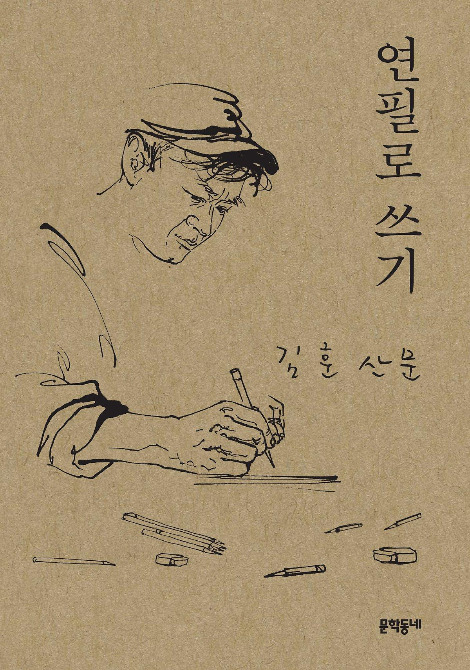 연필로 쓰기
김훈 산문
문학동네